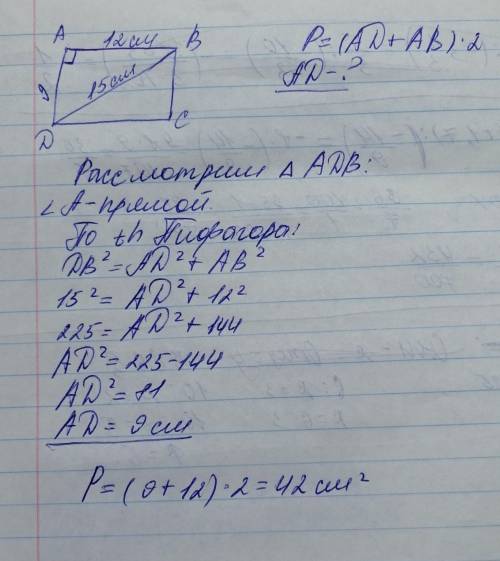 A 12см B
P=(AD+AB)·2
AD-?
9
15см
D C
Рассмотрим △ ADB:
∠A-прямой.
По th Пифагора:
DB²=AD²+AB²
15²=AD²+12²
225=AD²+144
AD²=225-144
AD²=81
AD=9см
P=(9+12)·2=42см²